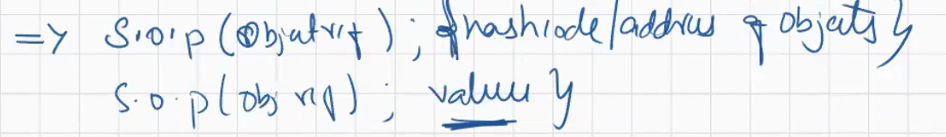 => S.o.p (Objectref); {hashcode/address of objects}
S.o.p(obj ref); value }